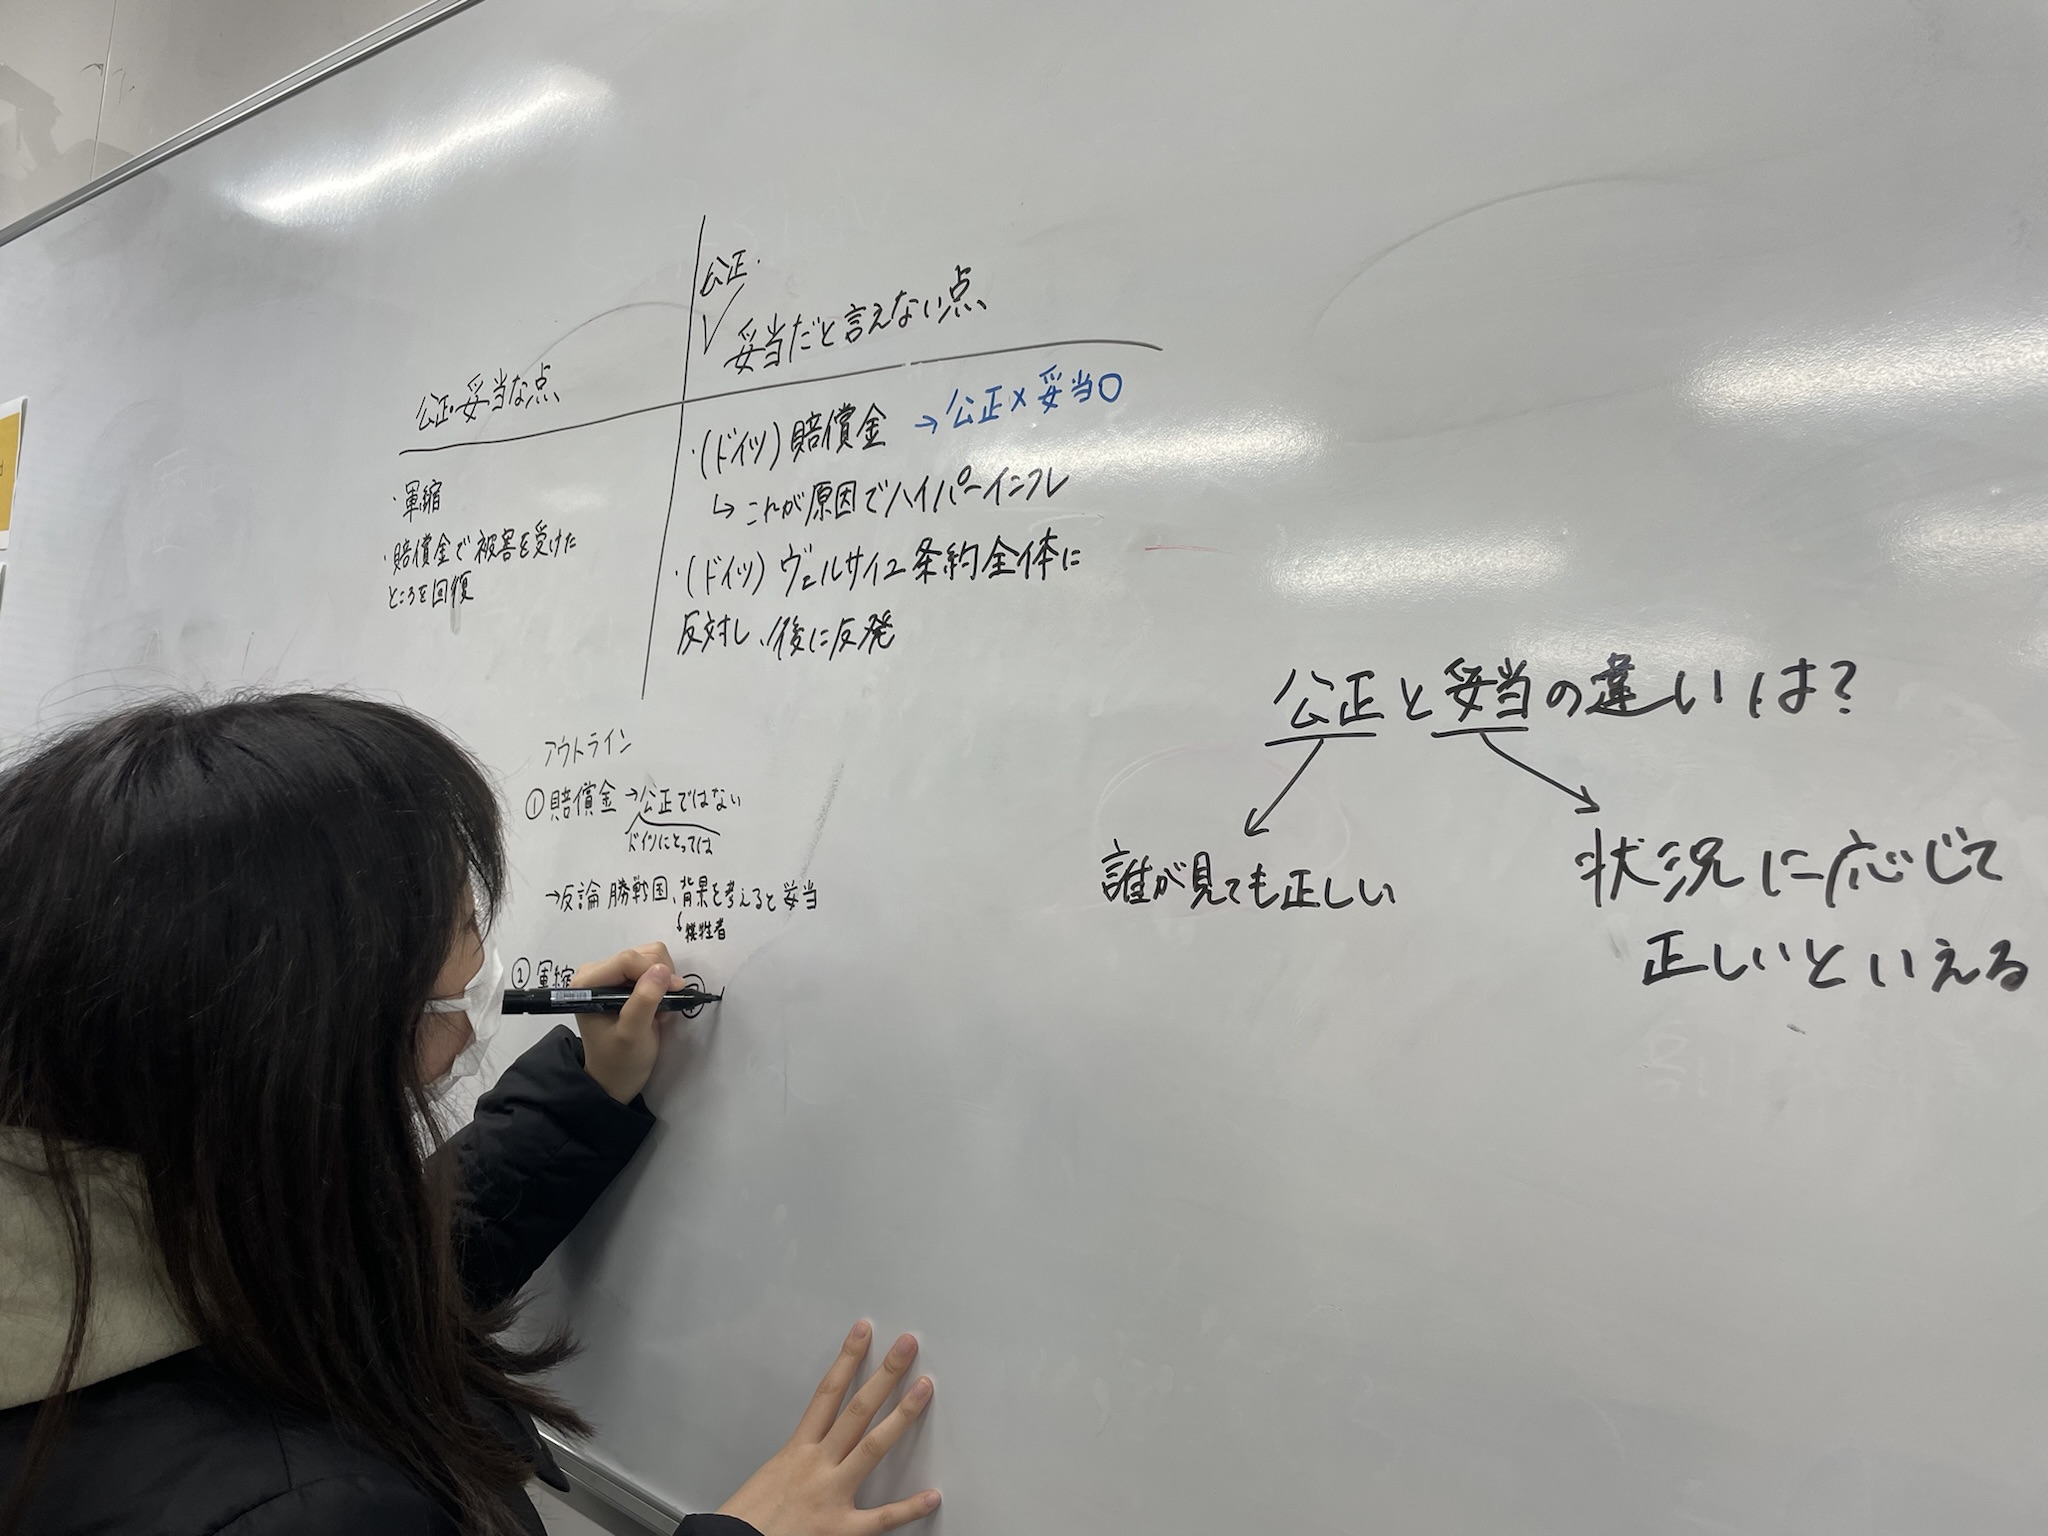 公正・妥当な点
・軍縮
・賠償金で被害を受けた
ところを回復
公正・
妥当だと言えない点
・(ドイツ)賠償金 →公正×妥当○
↳これが原因でハイパーインフレ
・(ドイツ)ヴェルサイユ条約全体に
反対し、後に反発
アウトライン
①賠償金→公正ではない
ドイツにとっては
→反論 勝戦国、背景を考えると妥当
↓犠牲者
②軍縮
公正と妥当の違いは?
誰が見ても正しい
状況に応じて
正しいといえる